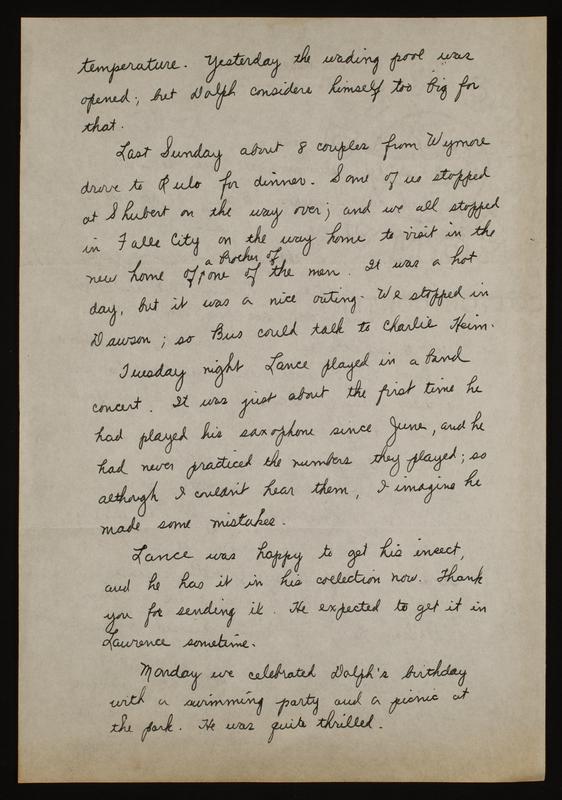 temperature. Yesterday the wading pool was
opened; but Dalph considers himself too big for
that.
Last Sunday about 8 couples from Wymore
drove to Rulo for dinner. Some of us stopped
at Shubert on the way over; and we all stopped
in Falls City on the way home to visit in the
a Brother of
new home of one of the men. It was a hot
day, but it was a nice outing. We stopped in
Dawson; so Bus could talk to Charlie Heim.
Tuesday night Lance played in a band
concert. It was just about the first time he
had played his saxophone since June, and he
had never practiced the numbers they played; so
although I couldn't hear them, I imagine he
made some mistakes.
Lance was happy to get his insect,
and he has it in his collection now. Thank
you for sending it. He expected to get it in
Lawrence sometime.
Monday we celebrated Dalph's birthday
with a swimming party and a picnic at
the park. He was quite thrilled.